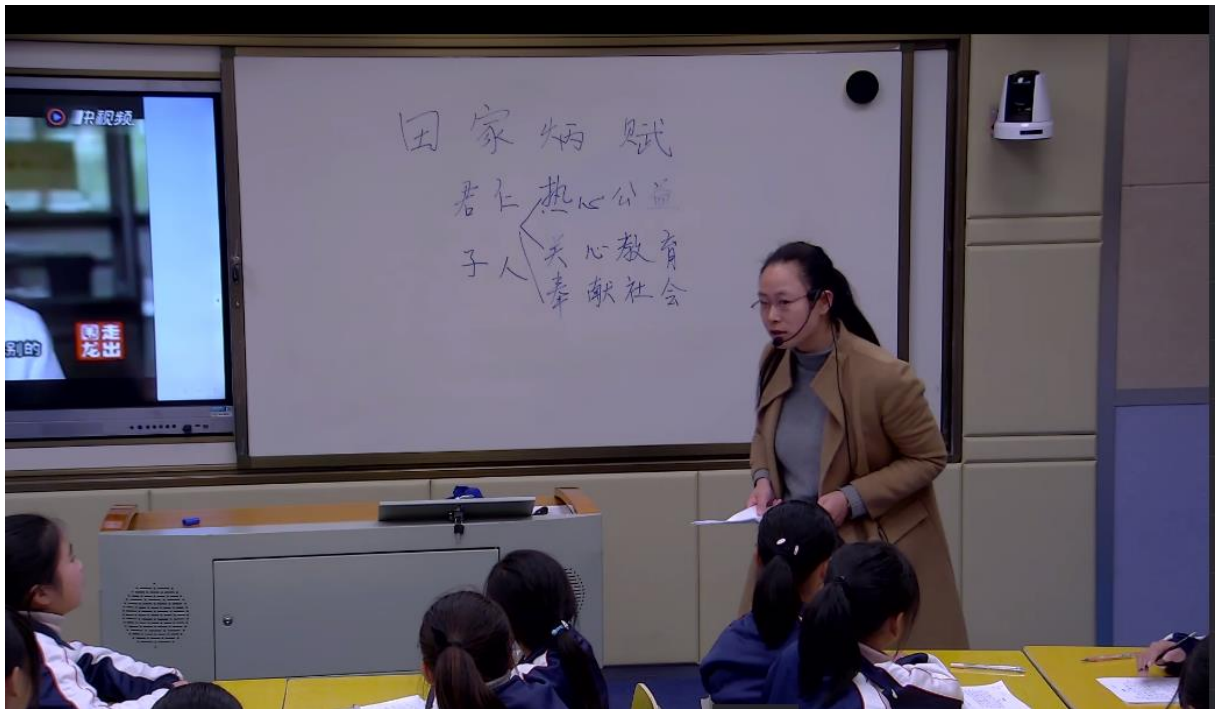 快视频
别的
走出
田家炳赋
君仁热心公益
子人关心教育
奉献社会